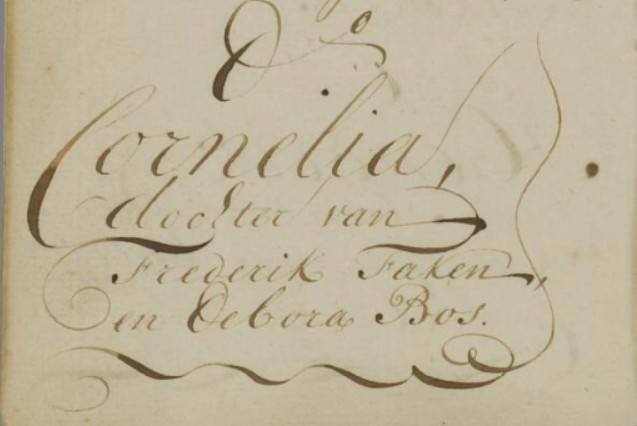 do
Cornelia,
dochter van
Frederik Faken,
en Debora Bos.